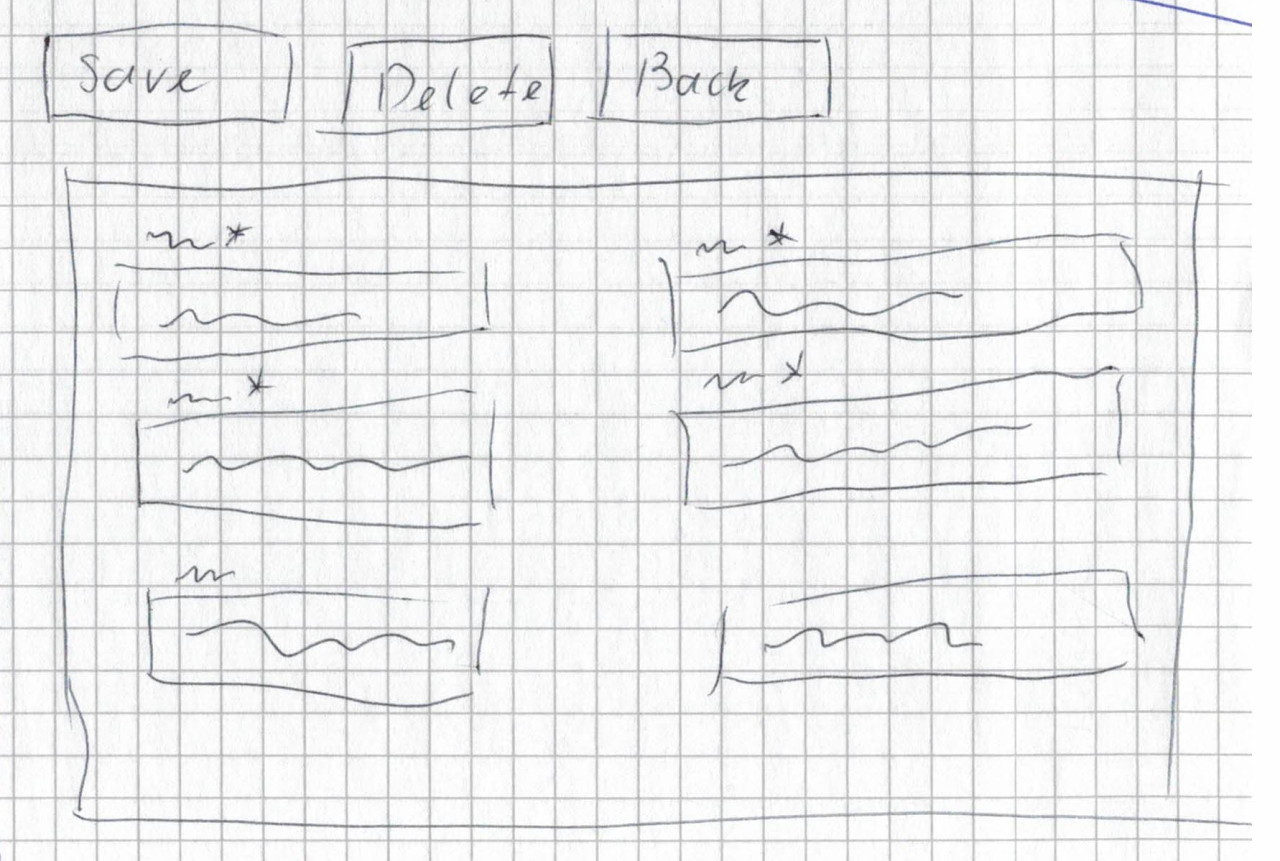 Save Delete Back
*
*
*
*